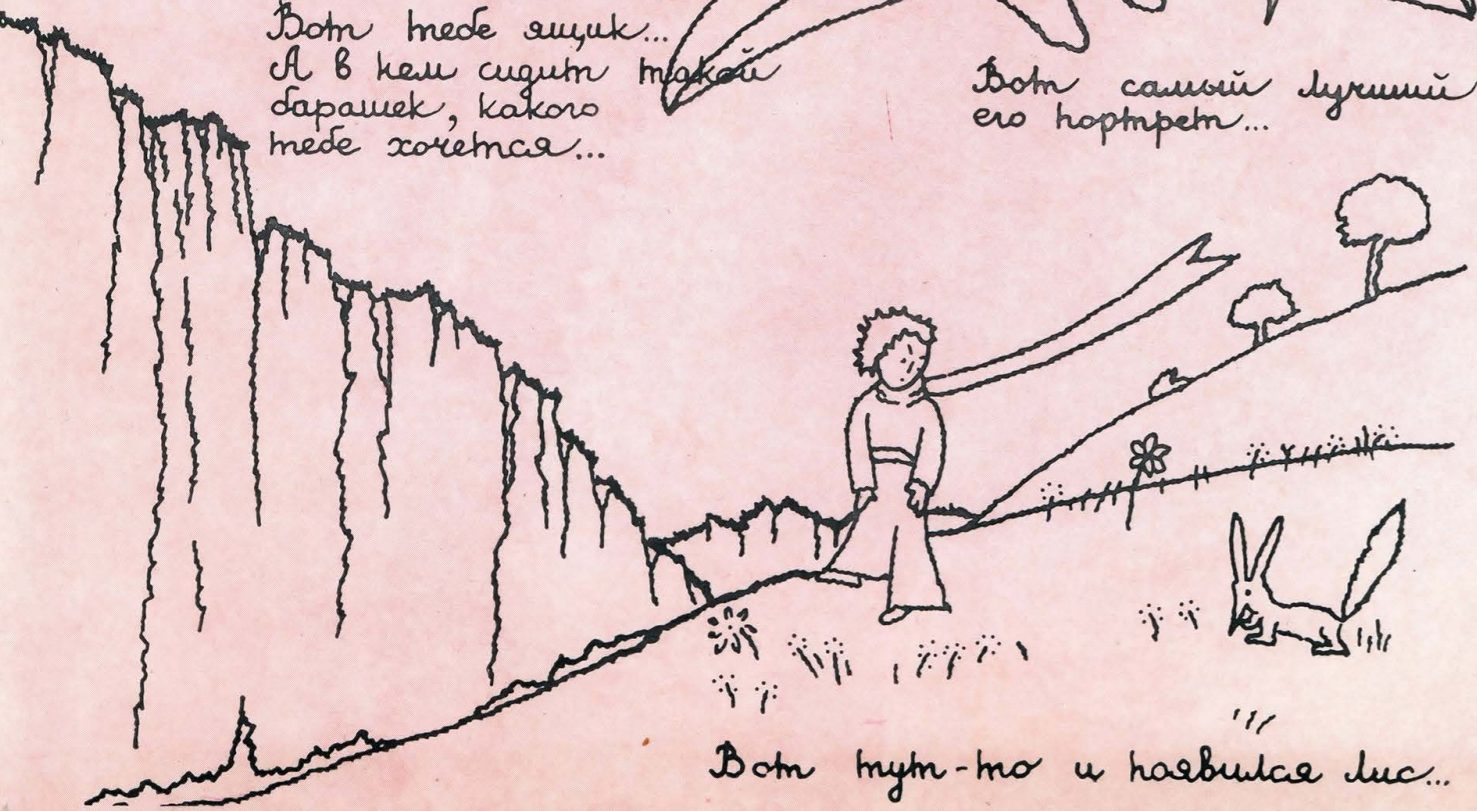 Вот тебе ящик...
А в нем сидит такой
барашек, какого
тебе хочется...
Вот самый лучший
его портрет...
Вот тут-то и появился лис...